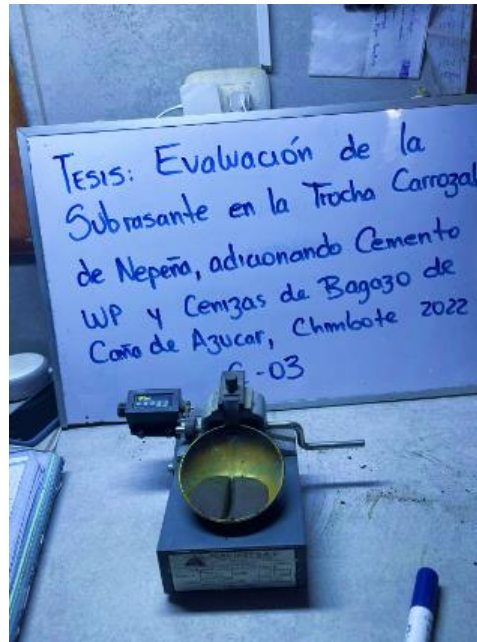 TESIS: Evaluación de la
Subrasante en la Trocha Carrozal
de Nepeña, adicionando Cemento
WP y Cenizas de Bagazo de
Caña de Azucar, Chimbote 2022
-03